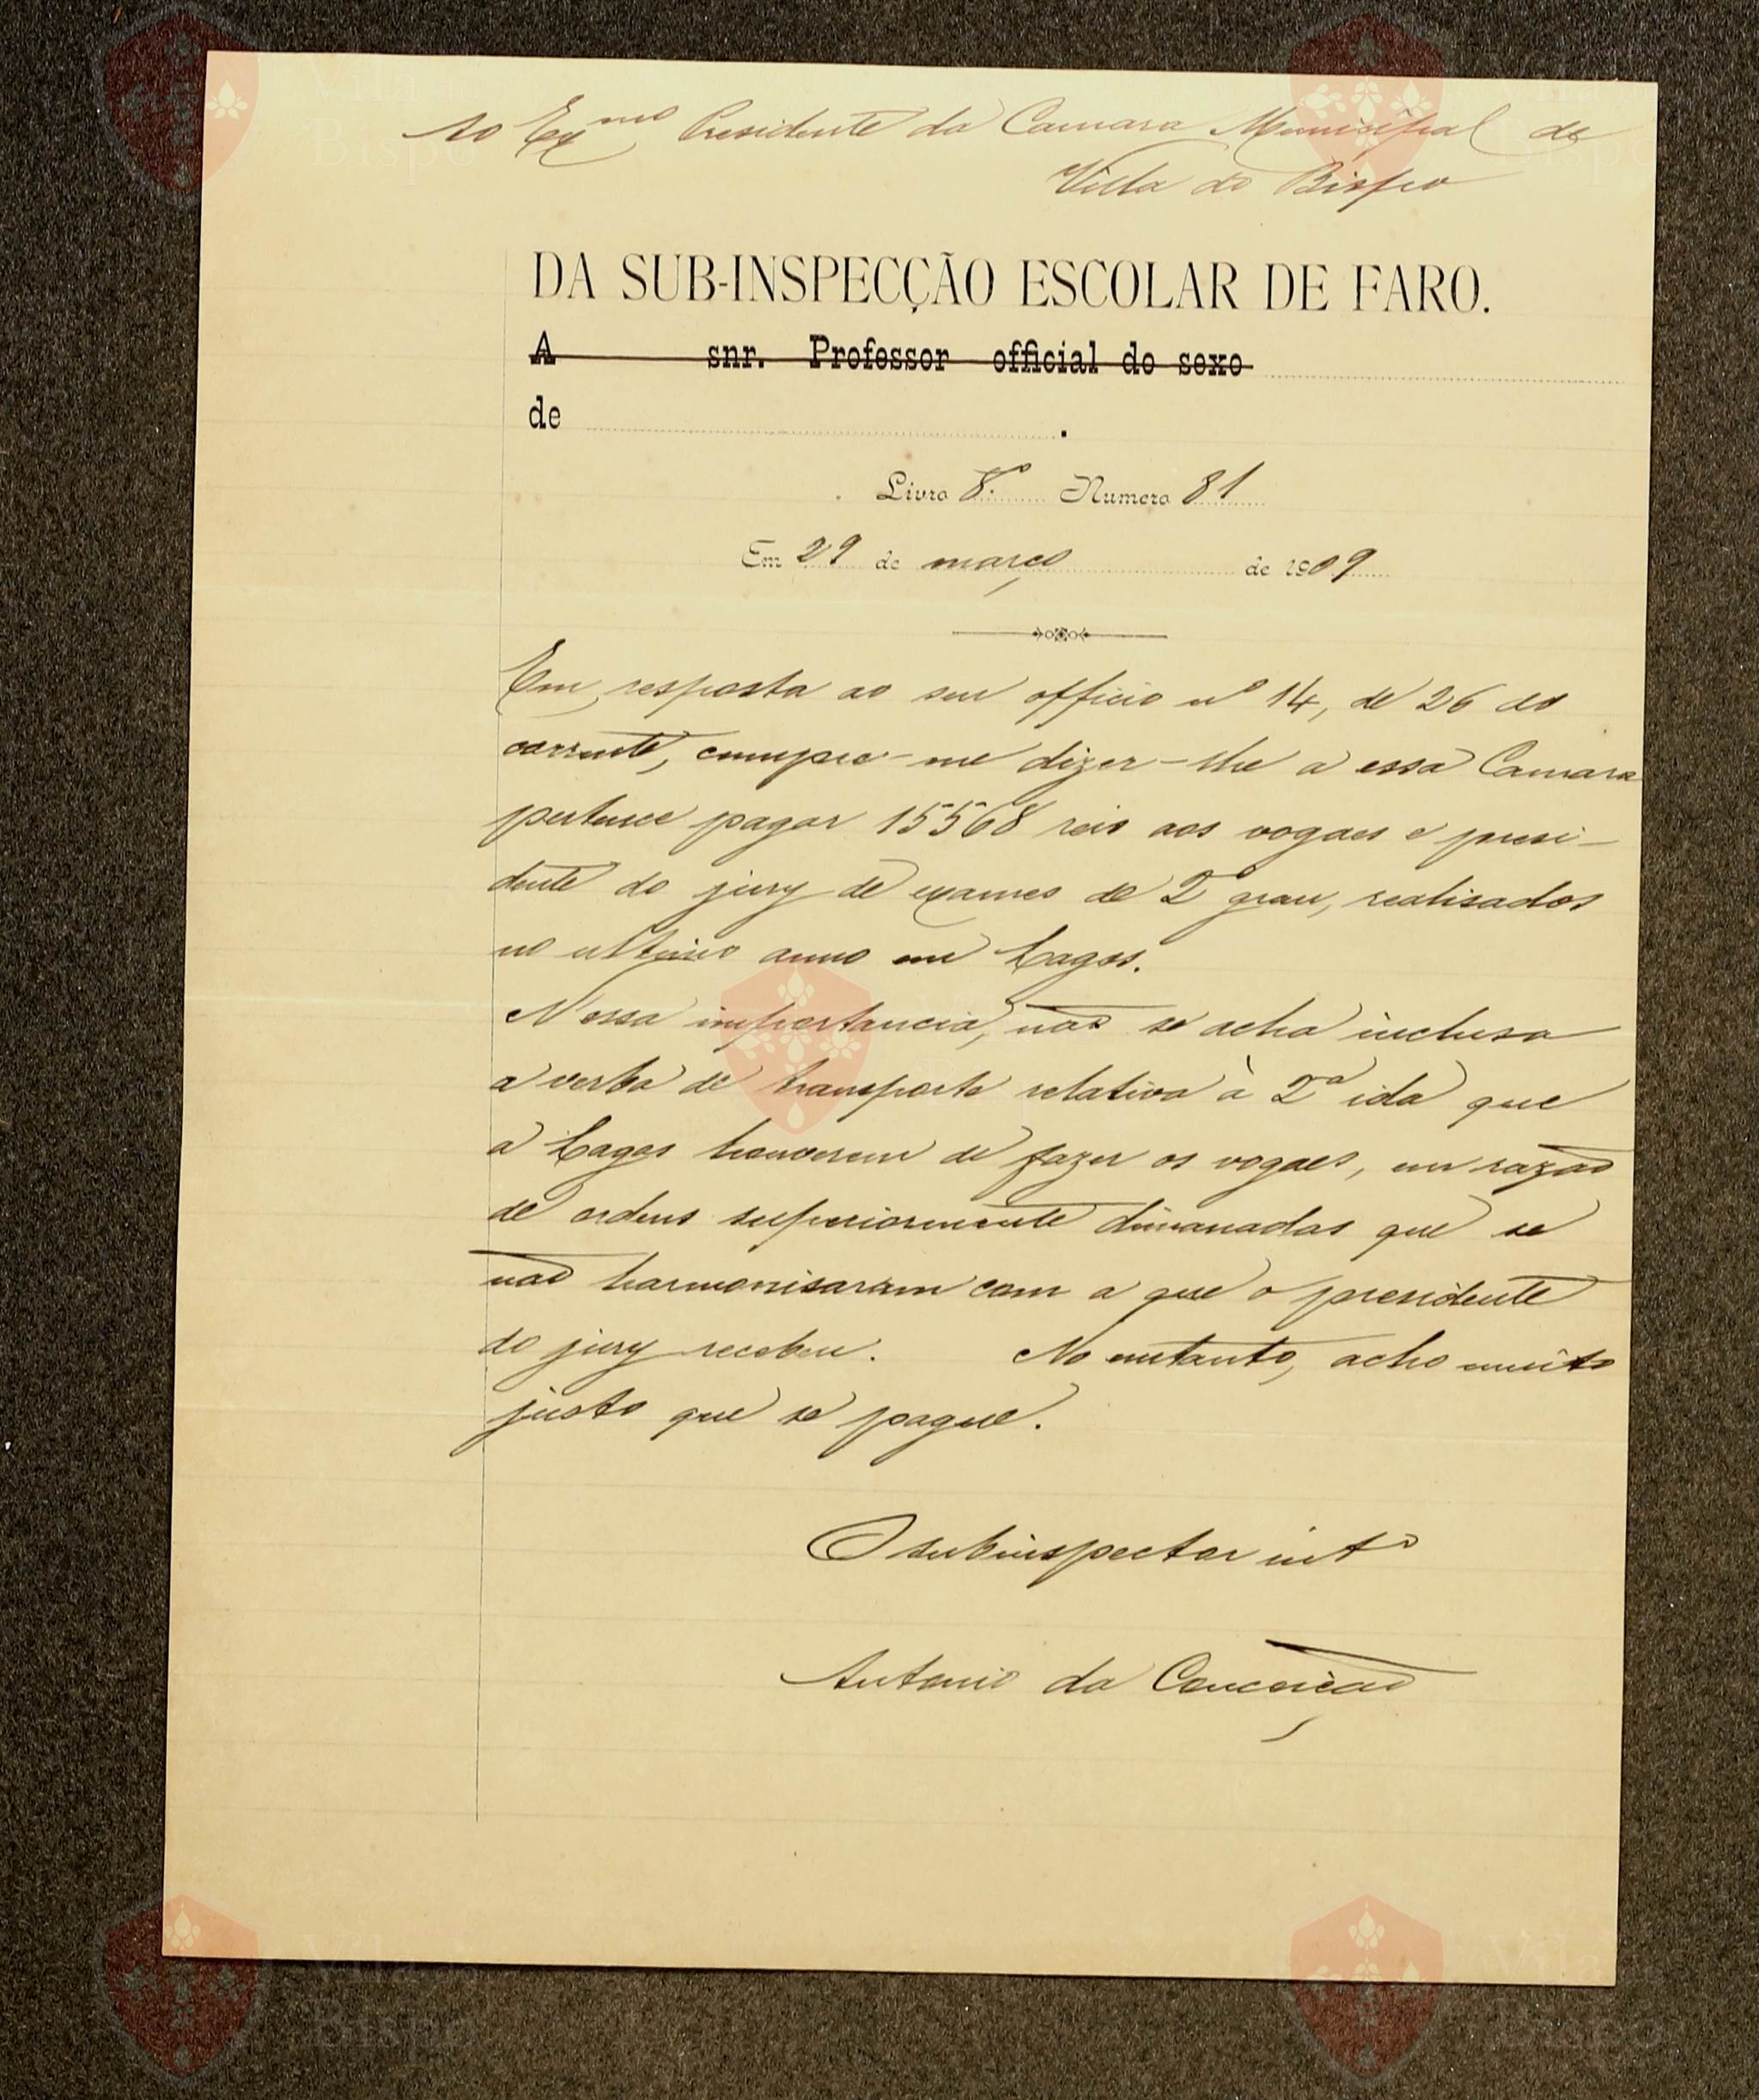 Ao Exmo Presidente da Camara Municipal de
Villa do Bispo
DA SUB-INSPECÇÃO ESCOLAR DE FARO.
A snr. Professor official do sexo
de .
Livro 8.º Numero 81
Em 29 de março de 1909
Em resposta ao seu officio nº 14, de 26 do
corrente, cumpre-me dizer-lhe a essa Camara
pertence pagar 15568 reis aos vogaes e presi-
dente do jury de exames de 2º grau, realisados
no ultimo anno em Lagos.
Nessa importancia, não se acha inclusa
a verba de transporte relativa à 2ª ida que
a Lagos houverem de fazer os vogaes, em razão
de ordens superiormente dimanadas que se
não harmonisaram com a que o presidente
do jury recebeu. No emtanto, acho muito
justo que se pague.
O subinspector intº
Antonio da Conceição
Vila do
Bispo